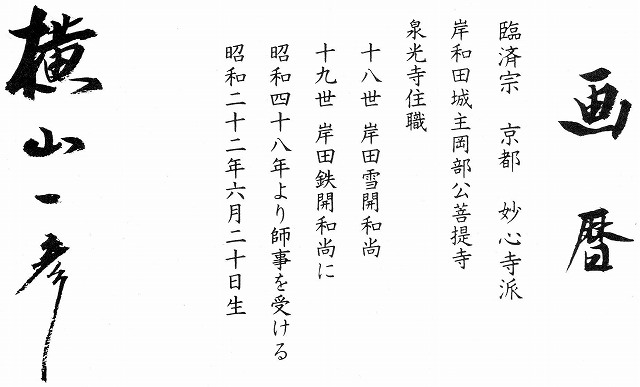 画暦
臨済宗 京都 妙心寺派
岸和田城主岡部公菩提寺
泉光寺住職
十八世 岸田雪開和尚
十九世 岸田鉄開和尚に
昭和四十八年より師事を受ける
昭和二十二年六月二十日生
横山一彦